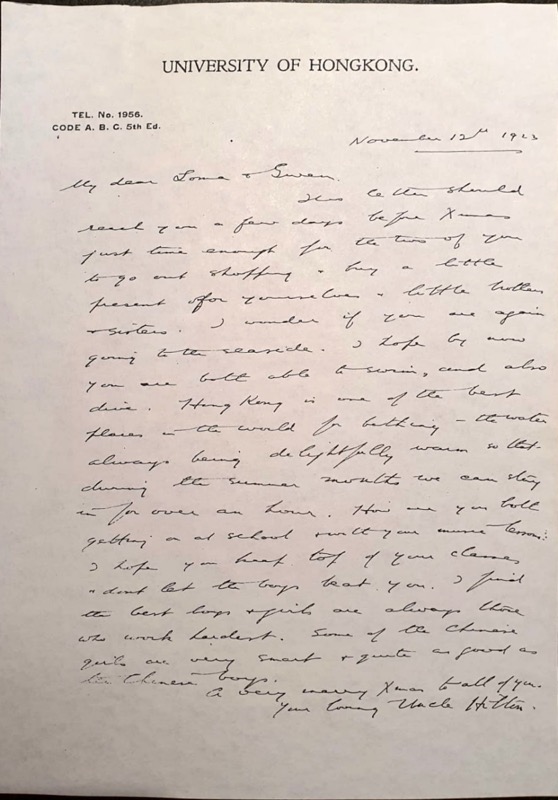 UNIVERSITY OF HONGKONG.
TEL. No. 1956.
CODE A. B. C. 5th Ed.
November 12th 1923
My dear Lorna & Gwen.
This letter should
reach you a few days before Xmas
just time enough for the two of you
to go out shopping & buy a little
present for yourselves & little brothers
& sisters. I wonder if you are again
going to the seaside. I hope by now
you are both able to swim, and also
dive. Hong Kong is one of the best
places in the world for bathing – the water
always being delightfully warm so that
during the summer months we can stay
in for over an hour. How are you both
getting on at school & with your music lessons:
I hope you keep top of your classes
& dont let the boys beat you. I find
the best boys & girls are always those
who work hardest. Some of the Chinese
girls are very smart & quite as good as
the Chinese boys.
A very merry Xmas to all of you.
Your loving Uncle Hilton.